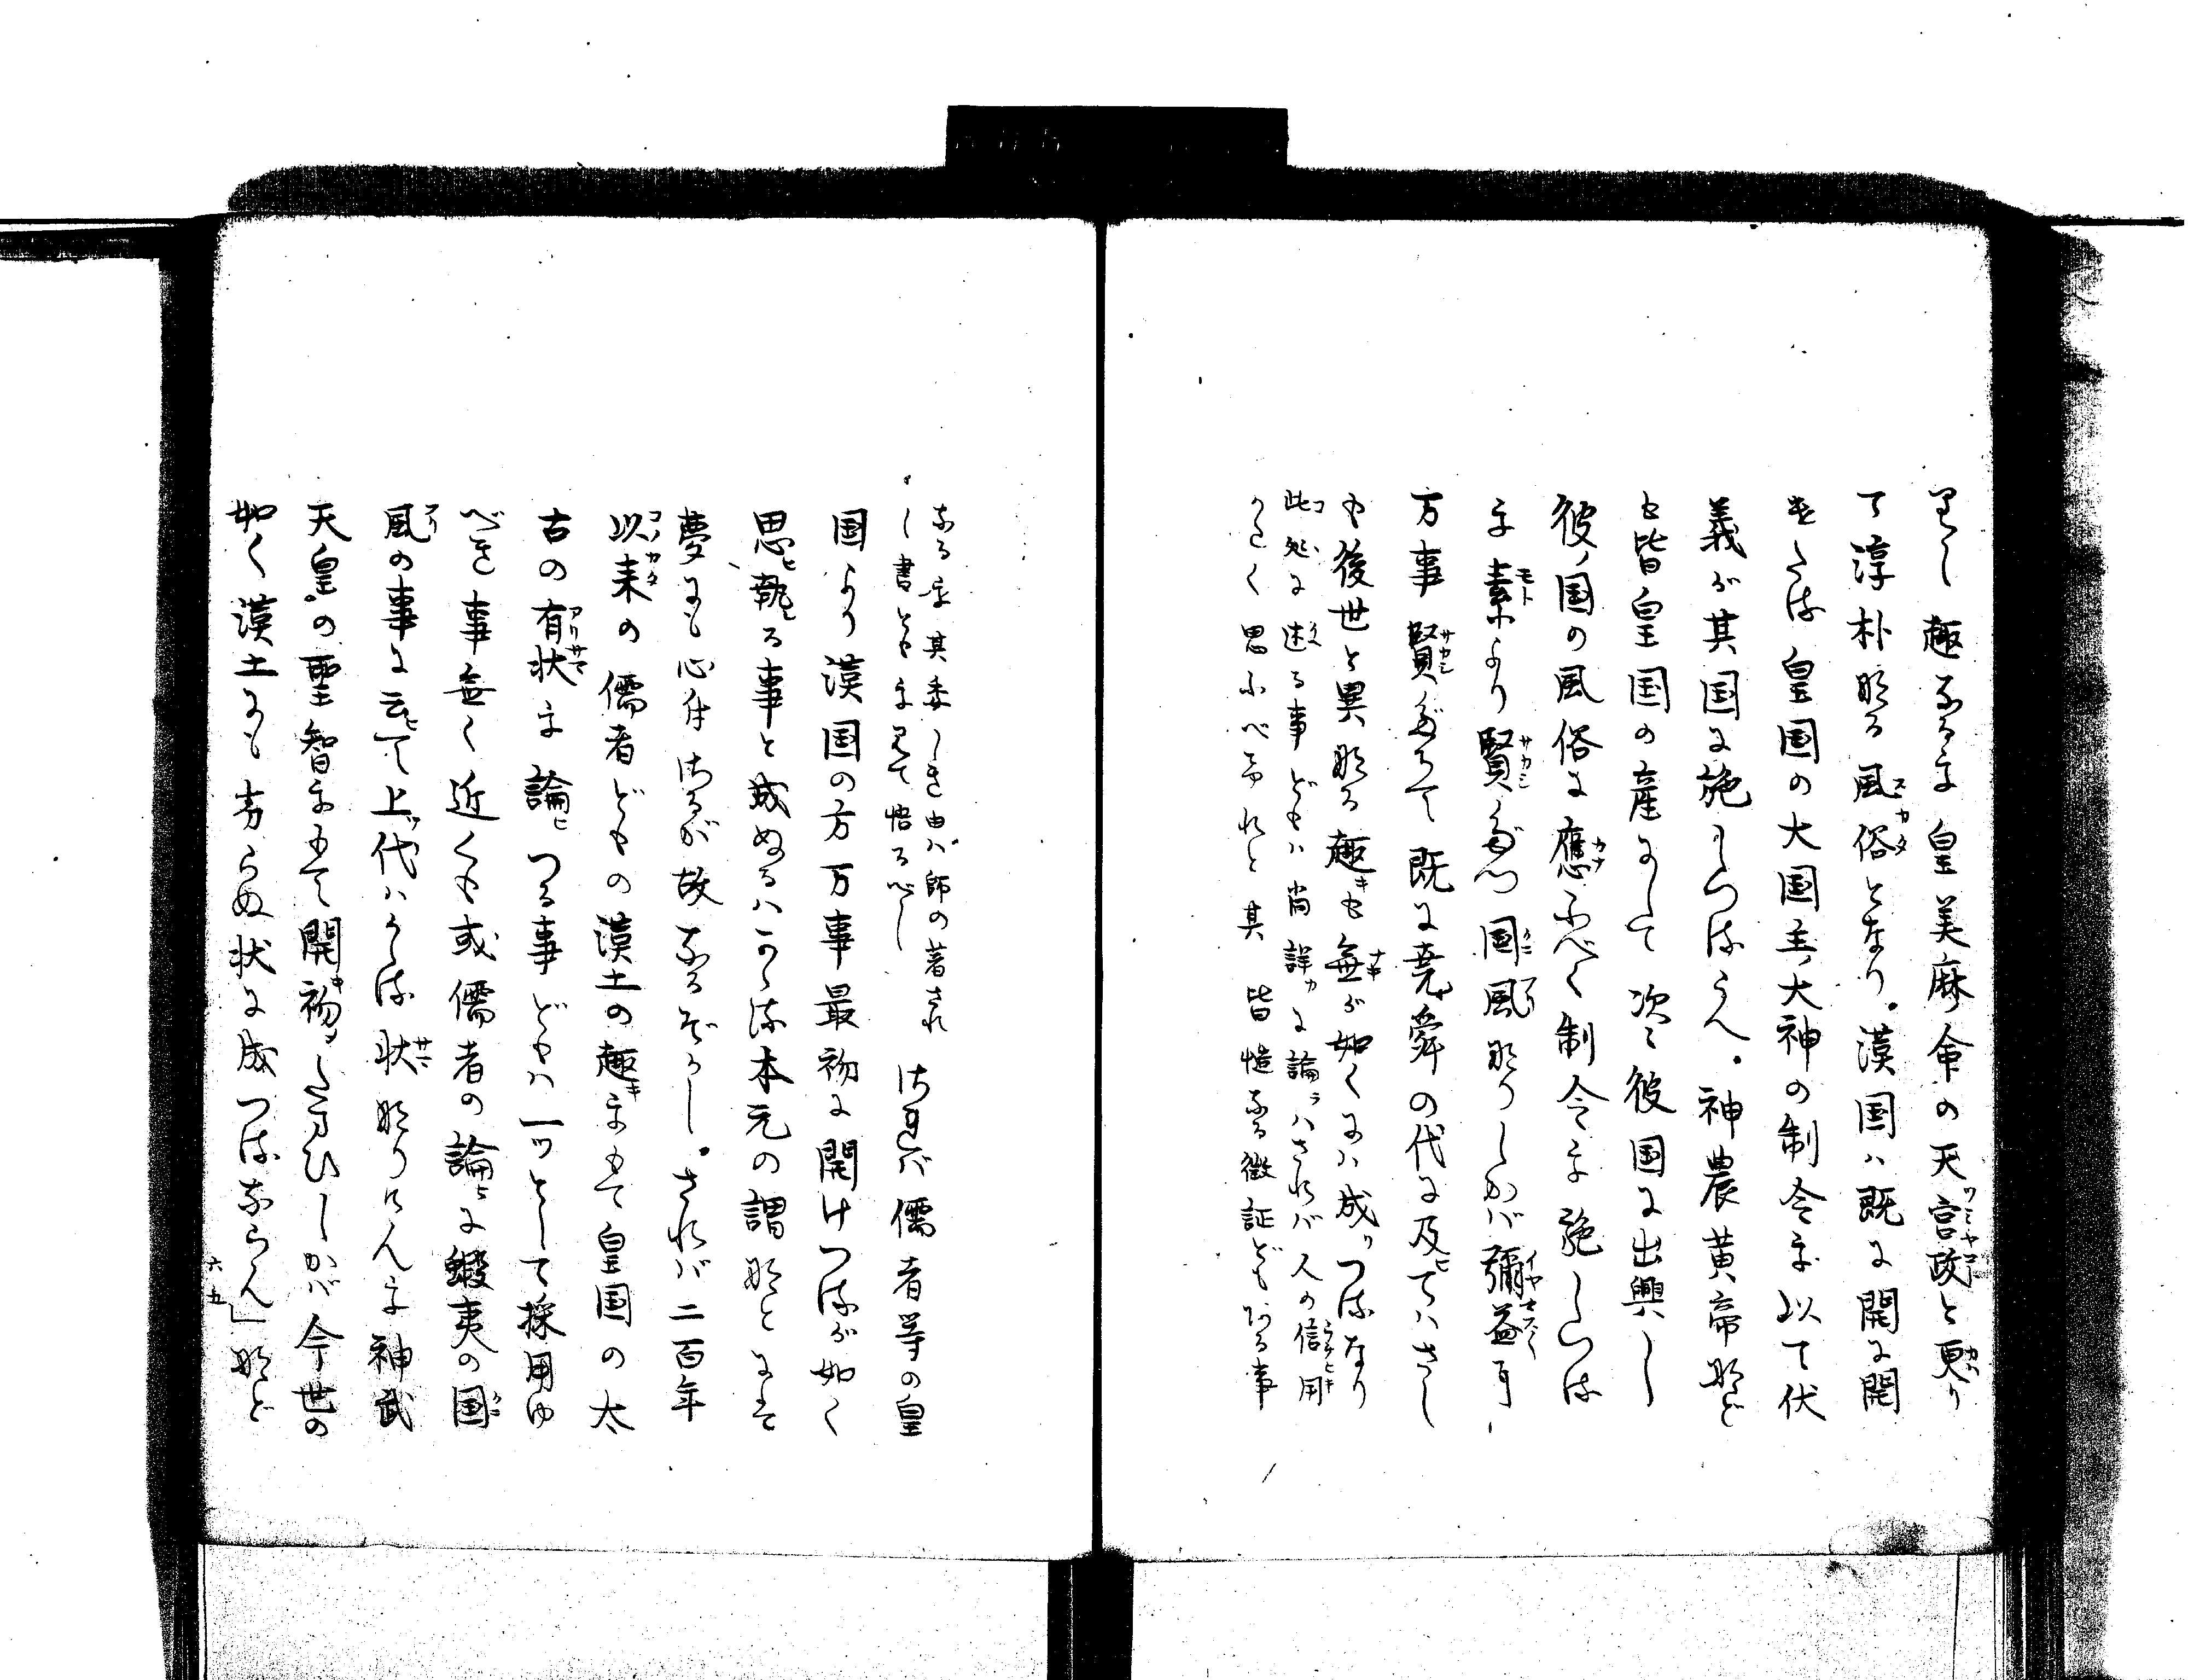 りし趣なるを皇美麻命の天宮政と更り
て淳朴なる風俗となり。漢国ハ既に開に開
きたる皇国の大国主大神の制令を以て伏
義が其国に施しつるうへ。神農黄帝など
も皆皇国の産にして次々彼国に出興し
彼ノ国の風俗に應ふべく制令を施しつる
を素より賢だつ国風なりしかバ彌益に
万事賢だちて既に堯舜の代に及てハさし
も後世と異なる趣も無が如くにハ成りつるなり
此処に述る事どもハ尚詳に論ラハされバ人の信用
かたく思ふべけれと其 皆慥なる徴証どもある事
なるを其委しき由ハ師の著され
し書ともを見て悟るべし
されバ儒者等の皇
国より漢国の方万事最初に開けつるが如く
思執る事と成ぬるハかゝる本元の謂なとにそ
夢にも心付ざるが故なるぞかし。されバ二百年
以来の儒者どもの漢土の趣をもて皇国の太
古の有状を論ひつる事どもハ一ツとして採用ゆ
べき事無く近くも或儒者の論に蝦夷の国
風の事に云て上ツ代ハかゝる状なりけんを神武
天皇の聖智をもて開初たまひしかバ今世の
如く漢土にも劣らぬ状に成つるならん」など
六五